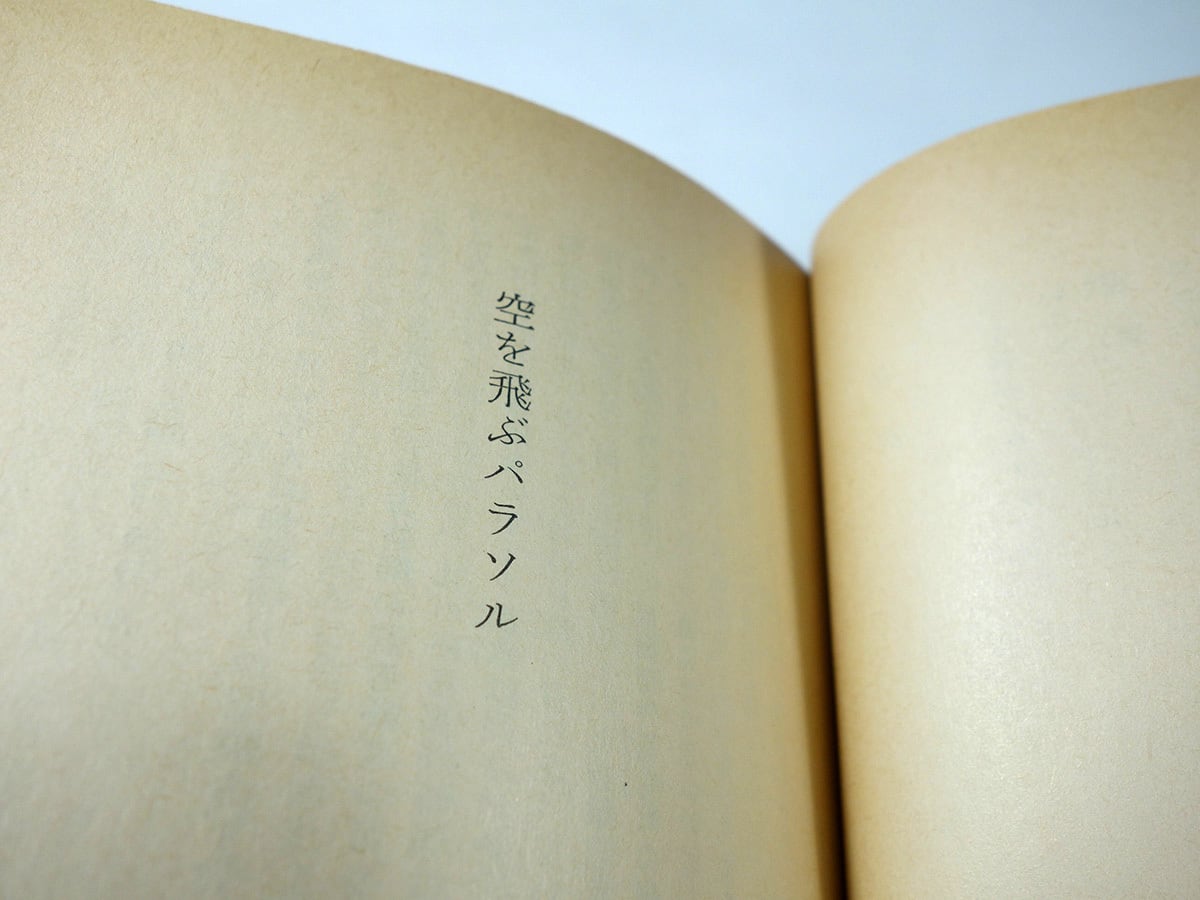 空を飛ぶパラソル